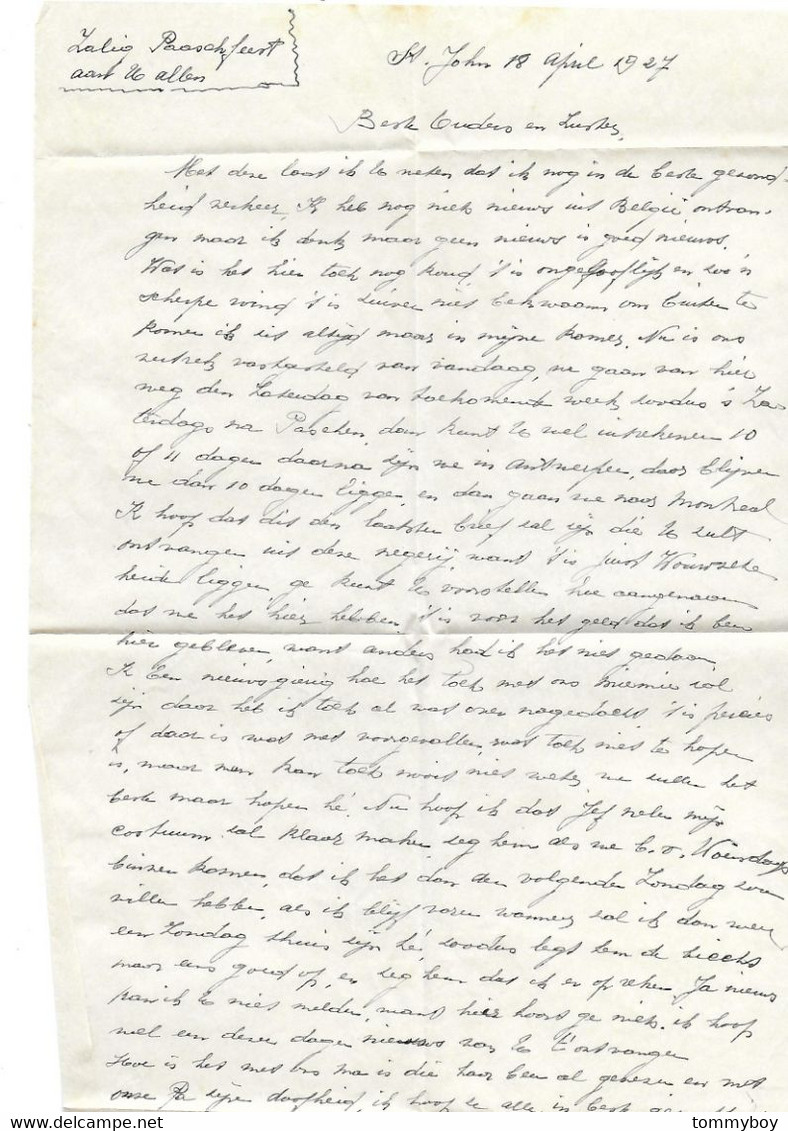 Zalig Paaschfeest
aan U allen
St. John 18 April 1927
Beste Ouders en Zuster,
Met deze laat ik U weten dat ik nog in de beste gezond-
heid verkeer. Ik heb nog niets nieuws uit België ontvan-
gen maar ik denk maar geen nieuws is goed nieuws.
Wat is het hier toch nog koud, 't is ongelooflijk en zoo'n
scherpe wind 't is zuiver niet bekwaam om buiten te
komen ik zit altijd maar in mijne kamer. Nu is ons
vertrek vastgesteld van vandaag, we gaan van hier
weg den Zaterdag van toekomende week zoodus 's Za-
terdags na Paschen, dan kunt U wel inrekenen 10
of 11 dagen daarna zijn we in Antwerpen, daar blijven
we dan 10 dagen liggen, en dan gaan we naar Montreal
Ik hoop dat dit den laatsten brief zal zijn die U zult
ontvangen uit deze negerij, want 't is juist Wouwsche
heide liggen ge kunt U voorstellen hoe aangenaam
dat we het hier hebben 't is voor het geld dat ik ben
hier gebleven, want anders had ik het niet gedaan
Ik ben nieuwsgierig hoe het toch met ons zal
zijn daar heb ik toch al wat over nagedacht 't is precies
of daar is wat met voorgevallen, wat toch niet te hopen
is, maar men kan toch nooit niet weten we zullen het
beste maar hopen hé. Nu hoop ik dat Jef mijn
costuum zal klaar maken zeg hem als we b.v. Woensdags
binnen komen, dat ik het dan den volgenden Zondag zou
willen hebben, als ik blijf varen wanneer zal ik dan weer
een Zondag thuis zijn hé, zoodus legt hem de zweep
maar eens goed op, en zeg hem dat ik er op reken Ja nieuws
kan ik U niet melden, want hier hoort ge niets. ik hoop
wel een dezer dagen nieuws van U t'ontvangen
Hoe is het met ons ma is die haar been al genezen en met
onze Pa zijne doofheid, ik hoop U alle in beste
tommyboy